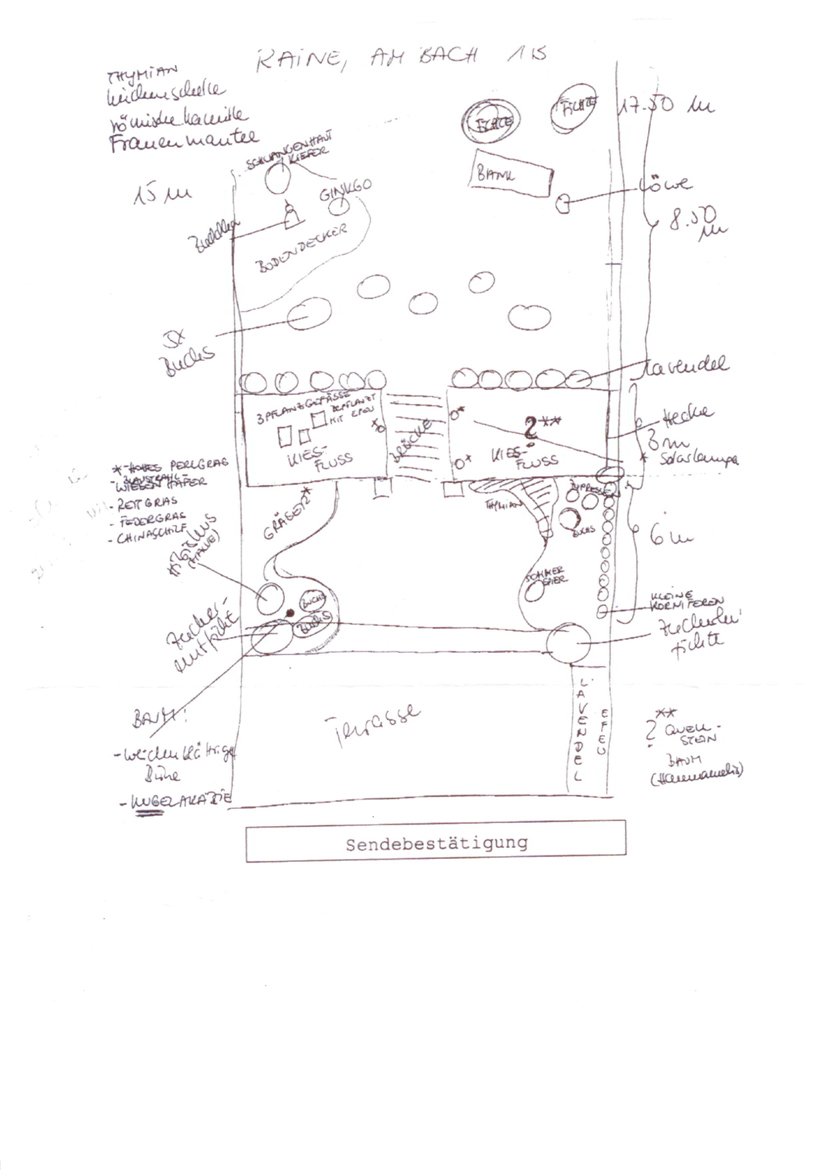 RAINE, AM BACH 115
THYMIAN
römische Kamille
Frauenmantel
FICHTE
FICHTE
17.50 m
SCHLANGENHAUT
KIEFER
BANK
15 m
GINKGO
Löwe
Buddha
8.50
m
BODENDECKER
5x
Buchs
Lavendel
3 PFLANZGEFÄSSE
BEPFLANZT
MIT EFEU
BRÜCKE
2**
Hecke
KIES-
FLUSS
KIES-
FLUSS
3 m
* Solarlampe
*-HOHES PERLGRAS
- BLAUSTRAHL-
WIESENHAFER
- REITGRAS
- FEDERGRAS
- CHINASCHILF
GRÄSER*
THYMIAN
ZYPRESSE
BUCHS
6 m
SOMMER
KLEINE
KONIFEREN
BUCHS
Buchs
Zucker-
hutfichte
Zuckerhut
fichte
BAUM:
- weidenblättrige
Birne
- KUGELAKAZIE
Terrasse
LAVENDEL
EFEU
**
2 QUELL-
STEIN
BAUM
(Hamamelis)
Sendebestätigung